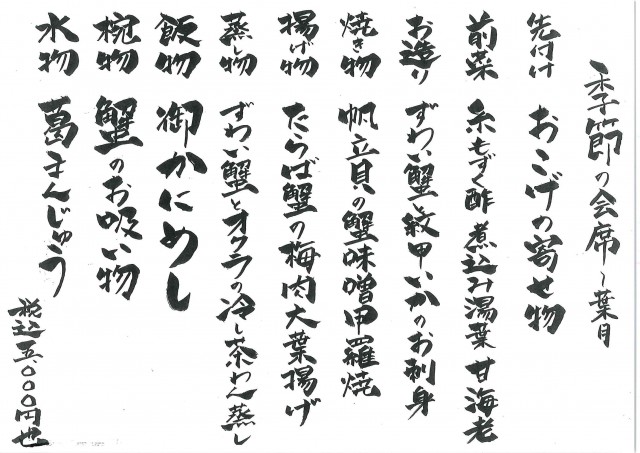 季節の会席〜葉月
先付け おこげの寄せ物
前菜 糸もずく酢 煮込み湯葉 甘海老
お造り ずわい蟹と紋甲いかのお刺身
焼き物 帆立貝の蟹味噌甲羅焼
揚げ物 たらば蟹の梅肉大葉揚げ
蒸し物 ずわい蟹とオクラの冷し茶わん蒸し
飯物 御かにめし
椀物 蟹のお吸い物
水物 葛まんじゅう
税込五、〇〇〇円也